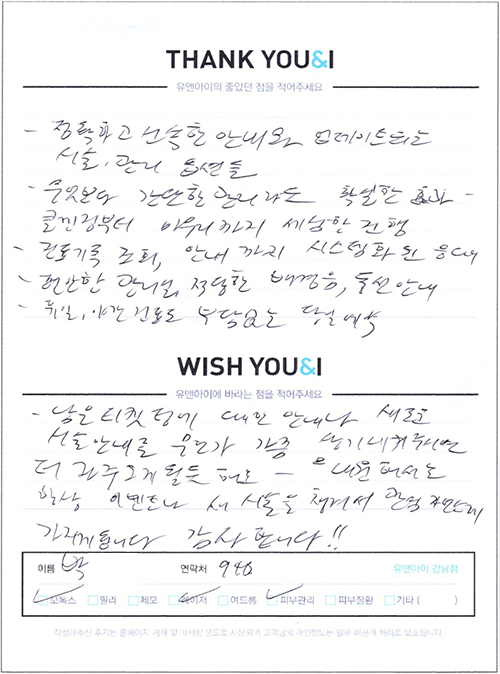 THANK YOU&I
유앤아이의 좋았던 점을 적어주세요
- 정확하고 신속한 안내와 업데이트되는
시술, 관리 옵션들
- 무엇보다 간단한 관리라도 확실한 효과 -
클렌징부터 마무리까지 세심한 진행
- 진료기록 조회, 안내까지 시스템화된 응대
- 편안한 관리실, 적당한 배경음, 동선안내
- 휴일, 야간진료도 부담없는 당일예약
WISH YOU&I
유앤아이에 바라는 점을 적어주세요
- 남은 티켓 등에 대한 안내나 새로운
시술안내를 문자가 가끔 보내주시면
더 자주오게 될듯 해요 -
항상 이벤트나 새 시술을
가지게됩니다 감사합니다!!
이름 박 연락처 946 유앤아이 강남점
보톡스 필러 제모 레이저 여드름 피부관리 피부질환 기타 ( )
작성해주신 후기는 홈페이지 게재 및 마케팅 용도로 사용되며 고객님의 개인정보는 일부 비공개 처리로 보호됩니다.